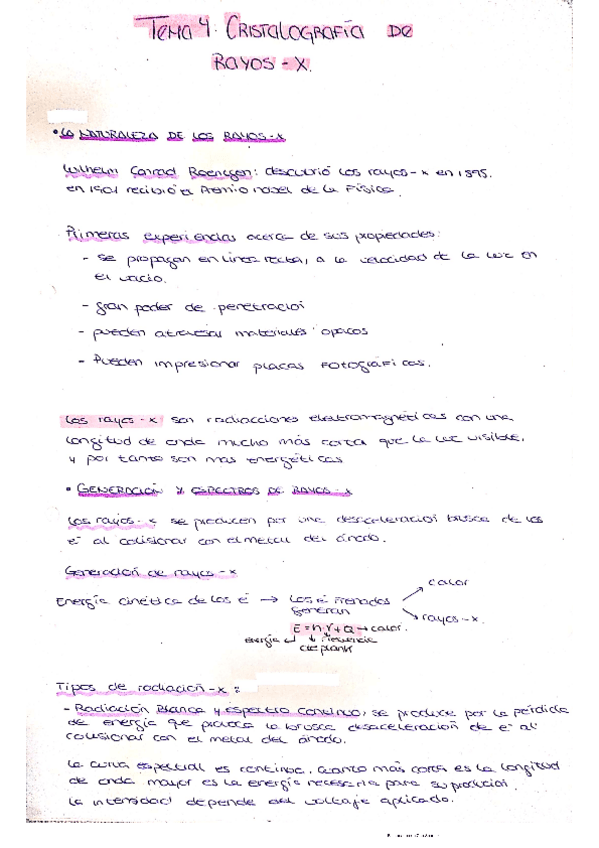 TEMA 4. CRISTALOGRAFÍA DE
RAYOS-X.
• LA NATURALEZA DE LOS RAYOS-X
Wilhelm Conrad Roentgen: descubrió los rayos-x en 1895.
en 1901 recibió el Premio nobel de la Física.
Primeras experiencias acerca de sus propiedades:
- se propagan en línea recta, a la velocidad de la luz en
el vacío.
- gran poder de penetración
- pueden atravesar materiales opacos
- Pueden impresionar placas FOTOGRÁFICAS.
Los rayos-x son radiacciones electromagnéticas con una
longitud de onda mucho más corta que la luz visible,
y por tanto son mas energéticas
• GENERACIÓN Y ESPECTROS DE RAYOS-X
Los rayos-x se producen por una desaceleración brusca de los
e⁻ al colisionar con el metal del ánodo.
Generación de rayos-x
Energía cinética de los e⁻ → Los e⁻ frenados
generan
calor
rayos-x.
E = h·γ + Q → calor.
energía ↓ frecuencia
cte plank
Tipos de radiación-x:
- Radiación Blanca y espectro continuo, se produce por la pérdida
de energía que provoca la brusca desaceleración de e⁻ al
colisionar con el metal del ánodo.
La curva espectral es continua, cuanto más corta es la longitud
de onda mayor es la energía necesaria para su producción.
La intensidad depende del voltaje aplicado.